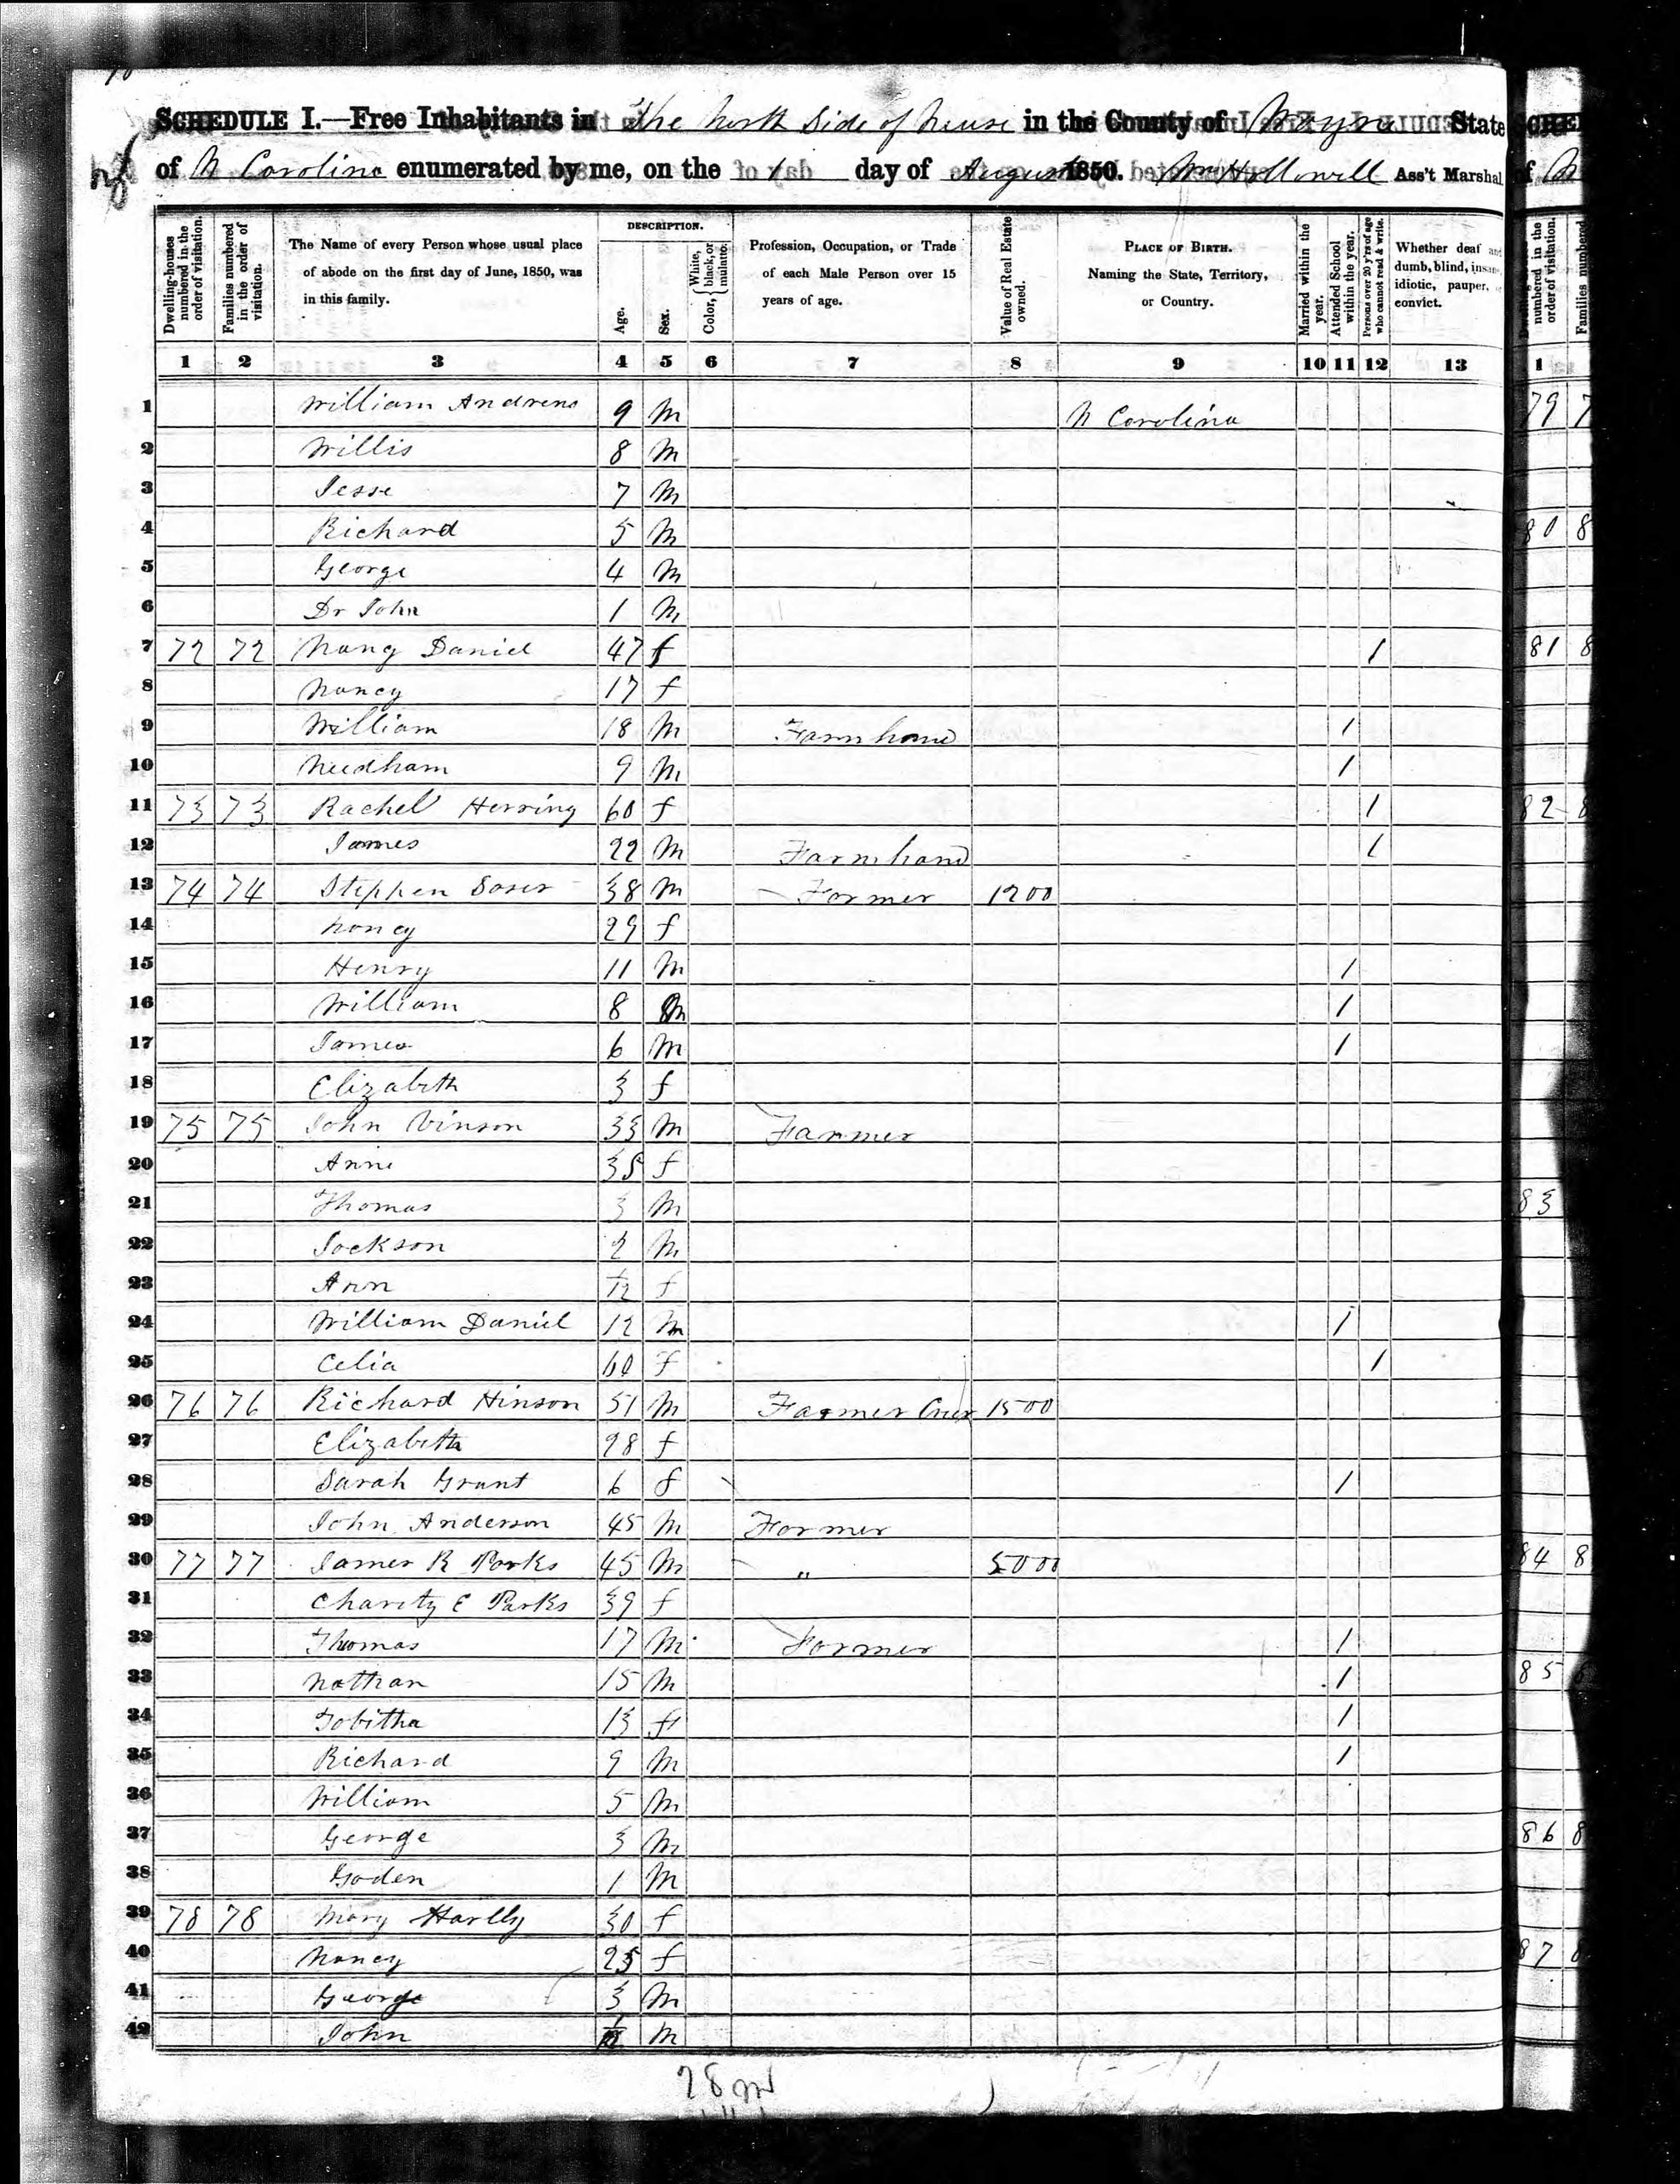 SCHEDULE I.—Free Inhabitants in the North Side of Neuse in the County of Wayne State
of N Carolina enumerated by me, on the 1 day of August 1850. Wm Hollowell Ass't Marshal
Dwelling-houses numbered in the order of visitation.
Families numbered in the order of visitation.
The Name of every Person whose usual place of abode on the first day of June, 1850, was in this family.
DESCRIPTION.
Age.
Sex.
Color, White, black, or mulatto.
Profession, Occupation, or Trade of each Male Person over 15 years of age.
Value of Real Estate owned.
PLACE OF BIRTH. Naming the State, Territory, or Country.
Married within the year.
Attended School within the year.
Persons over 20 y'rs of age who cannot read & write.
Whether deaf and dumb, blind, insane, idiotic, pauper, or convict.
1 2 3 4 5 6 7 8 9 10 11 12 13
1 William Andrens 9 M N Carolina
2 Willis 8 M
3 Jesse 7 M
4 Richard 5 M
5 George 4 M
6 Dr John 1 M
7 72 72 Nancy Daniel 47 f 1
8 Nancy 17 f
9 William 18 M Farm hand 1
10 Needham 9 M 1
11 73 73 Rachel Herring 60 f 1
12 James 22 M Farm hand 1
13 74 74 Stephen Saser 38 M Farmer 1200
14 Nancy 29 f
15 Henry 11 M 1
16 William 8 M 1
17 James 6 M 1
18 Elizabeth 3 f
19 75 75 John Vinson 33 M Farmer
20 Anne 35 f
21 Thomas 3 M
22 Jackson 2 M
23 Ann f
24 William Daniel 12 M 1
25 Celia 60 f 1
26 76 76 Richard Hinson 51 M Farmer 1500
27 Elizabeth 28 f
28 Sarah Grant 6 f 1
29 John Anderson 45 M Farmer
30 77 77 James R Parks 45 M " 5000
31 Charity E Parks 39 f
32 Thomas 17 M Farmer 1
33 Nathan 15 M 1
34 Tobitha 13 f 1
35 Richard 9 M 1
36 William 5 M
37 George 3 M
38 Goden 1 M
39 78 78 Mary Hartly 30 f
40 Nancy 25 f
41 George 3 M
42 John M
28 M
1
79
80 8
81 8
82 8
83
84 8
85
86 8
87 8